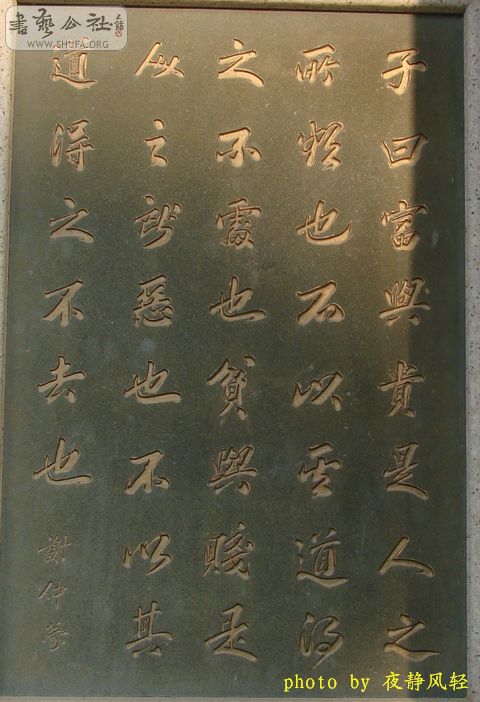 書藝公社
WWW.SHUFA.ORG
子曰富與貴是人之
所欲也不以其道得
之不處也貧與賤是
人之所惡也不以其
道得之不去也
謝仲
photo by 夜静风轻